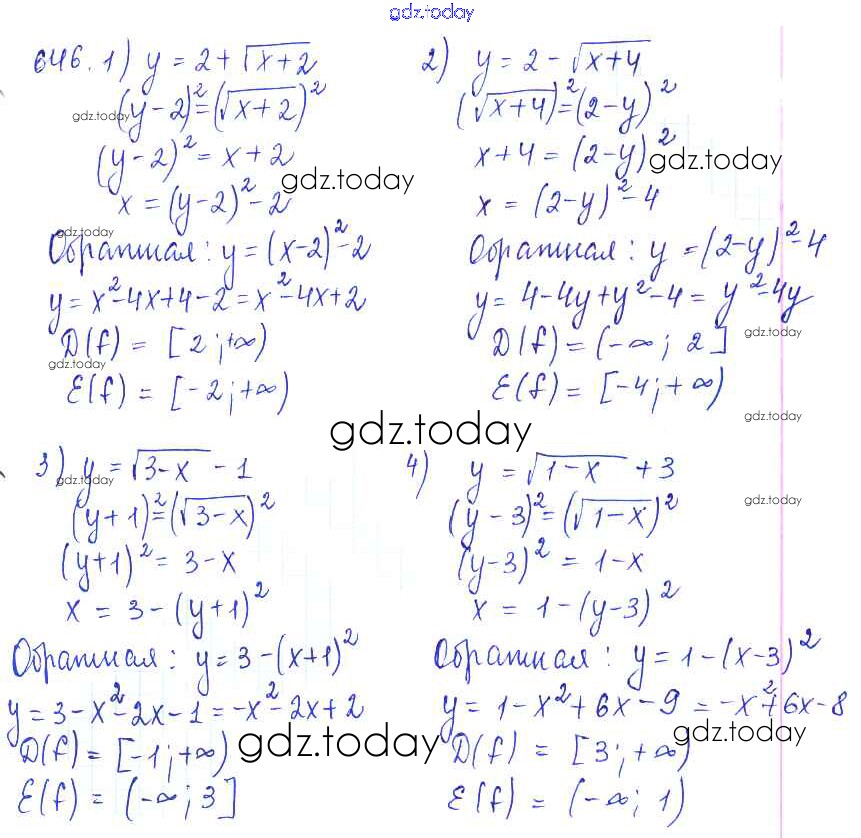 gdz.today
646. 1) y = 2 + √(x+2)
(y-2)² = (√(x+2))²
gdz.today
(y-2)² = x+2
gdz.today
x = (y-2)² - 2
gdz.today
Обратная: y = (x-2)² - 2
y = x² - 4x + 4 - 2 = x² - 4x + 2
D(f) = [2; +∞)
gdz.today
E(f) = [-2; +∞)
2) y = 2 - √(x+4)
(√(x+4))² = (2-y)²
x+4 = (2-y)²
gdz.today
x = (2-y)² - 4
Обратная: y = (2-y)² - 4
y = 4 - 4y + y² - 4 = y² - 4y
gdz.today
D(f) = (-∞; 2]
E(f) = [-4; +∞)
gdz.today
gdz.today
3) y = √(3-x) - 1
gdz.today
(y+1)² = (√(3-x))²
(y+1)² = 3-x
x = 3 - (y+1)²
Обратная: y = 3 - (x+1)²
y = 3 - x² - 2x - 1 = -x² - 2x + 2
D(f) = [-1; +∞)
gdz.today
E(f) = (-∞; 3]
4) y = √(1-x) + 3
(y-3)² = (√(1-x))²
gdz.today
(y-3)² = 1-x
x = 1 - (y-3)²
Обратная: y = 1 - (x-3)²
y = 1 - x² + 6x - 9 = -x² + 6x - 8
gdz.today
D(f) = [3; +∞)
E(f) = (-∞; 1)